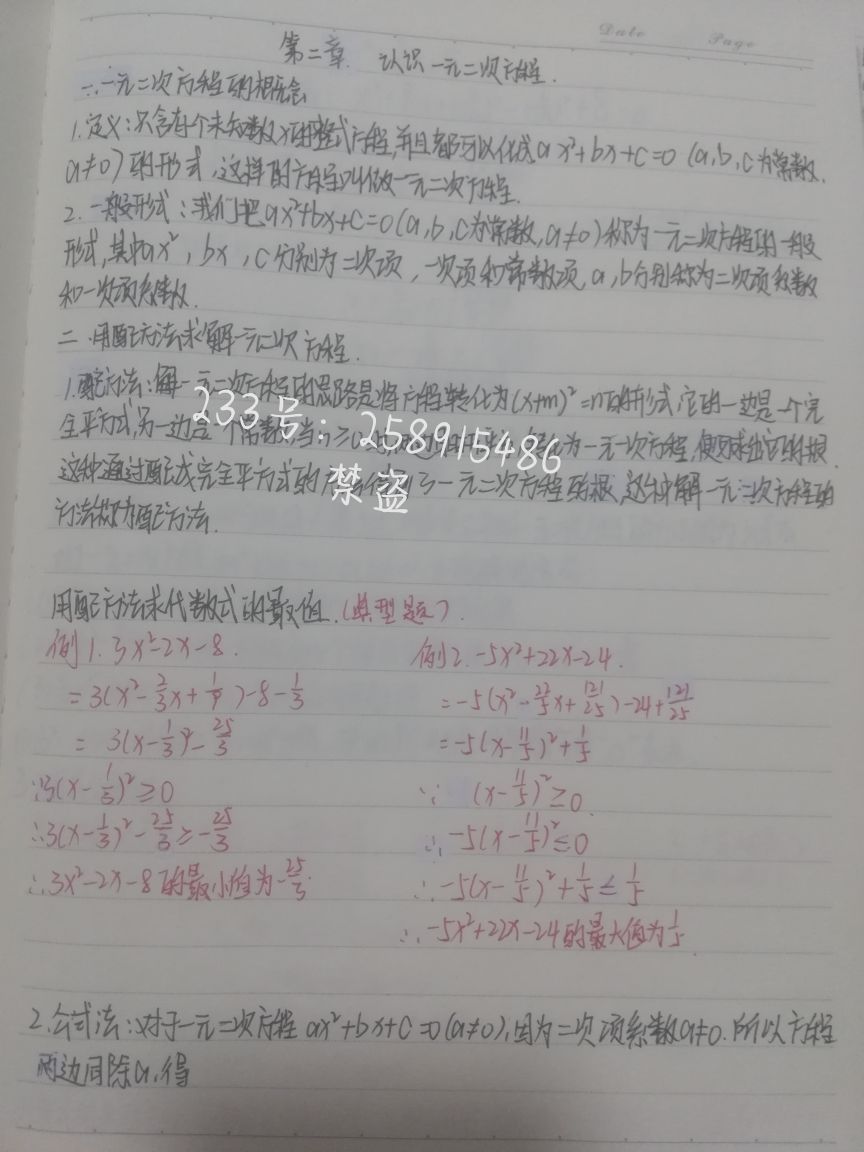 Date Page
第二章. 认识一元二次方程.
一.一元二次方程的概念
1.定义:只含有个未知数x的整式方程,并且都可以化成ax²+bx+c=0 (a,b,c为常数.
a≠0)的形式,这样的方程叫做一元二次方程.
2.一般形式:我们把ax²+bx+c=0(a,b,c为常数,a≠0)称为一元二次方程的一般
形式,其中ax²,bx,c分别为二次项,一次项和常数项,a,b分别称为二次项系数
和一次项系数.
二.用配方法求解一元二次方程.
1.配方法:解一元二次方程的思路是将方程转化为(x+m)²=n的形式,它的一边是一个完
全平方式,另一边是 常数,当n≥0 为一元一次方程,便可求出它的根.
这种通过配成完全平方式的 了一元二次方程的根,这种解一元二次方程的
方法称为配方法.
233号:258915486
禁盗
用配方法求代数式的最值.(典型题).
例1.3x²-2x-8.
=3(x²-2/3x+1/9)-8-1/3
=3(x-1/3)²-25/3
∵3(x-1/3)²≥0
∴3(x-1/3)²-25/3≥-25/3
∴3x²-2x-8的最小值为-25/3.
例2.-5x²+22x-24.
=-5(x²-22/5x+121/25)-24+121/25
=-5(x-11/5)²+1/5
∵(x-11/5)²≥0.
∴-5(x-11/5)²≤0
∴-5(x-11/5)²+1/5≤1/5
∴-5x²+22x-24的最大值为1/5.
2.公式法:对于一元二次方程ax²+bx+c=0(a≠0),因为二次项系数a≠0.所以方程
两边同除a,得